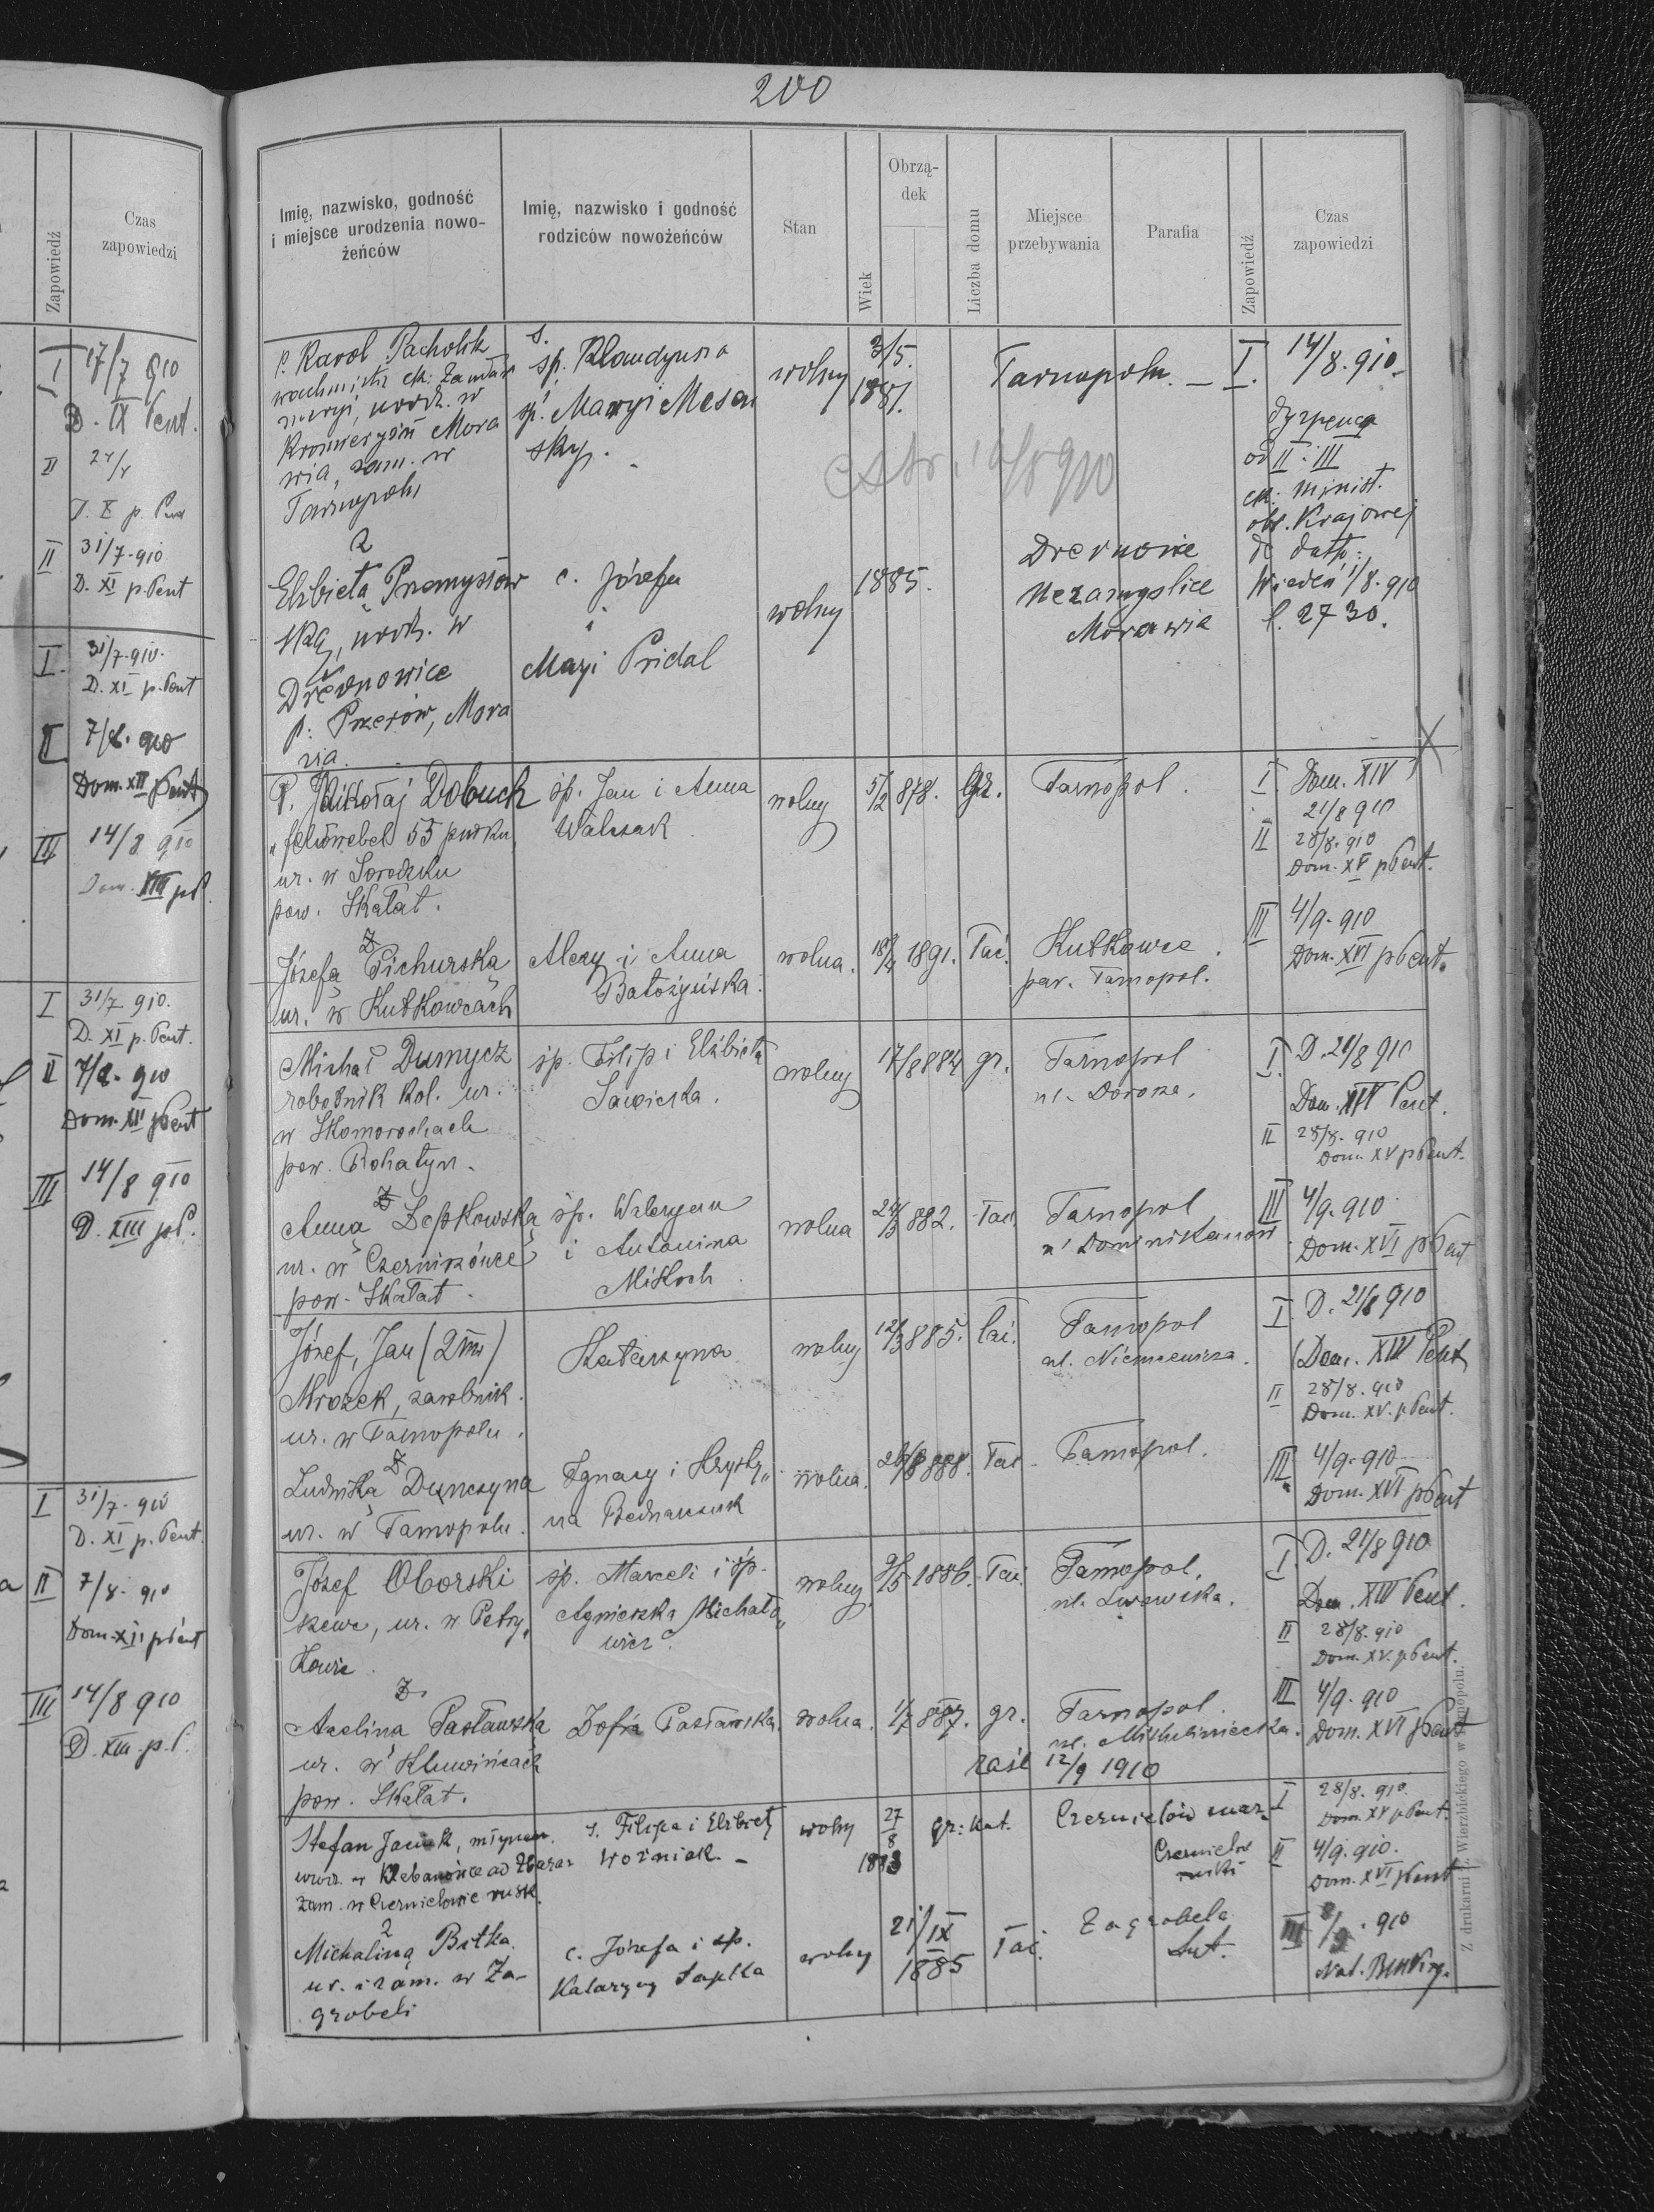 200
Zapowiedź
Czas
zapowiedzi
I 17/7 910
D. IX Pent.
II
D. X p.
II 31/7 - 910
D. XI p. Pent
I 31/7 - 910.
D. XI p. Pent
II 7/8. 910
Dom. XII pPent
III 14/8 910
Dom. XIII p
I 31/7 910.
D. XI p. Pent.
II 7/8. 910
Dom. XII pPent
III 14/8 910
D. XIII p.
I 31/7 - 910
D. XI p. Pent.
II 7/8 - 910
Dom. XII pPent
III 14/8 910
D. XIII p.
Imię, nazwisko, godność
i miejsce urodzenia nowo-
żeńców
Imię, nazwisko i godność
rodziców nowożeńców
Stan
Wiek
Obrzą-
dek
Liczba domu
Miejsce
przebywania
Parafia
Zapowiedź
Czas
zapowiedzi
P. Karol Pacholik
wachmistrz ck: żandar
meryi, urodz. w
Mora
wia, zam. w
Tarnopolu
s.
sp. Klaudyusza
i
sp. Maryi Mesen
sky.
wolny
3/5.
1881.
Tarnopolu. — I. 14/8. 910.
dyspensa
od II i III
ck: minist.
obr. Krajowej
de datto:
Wiedeń 1/8. 910
l. 2730.
z
Elżbieta Przemysłow
ska, urodz. w
Dřevnowice
p: Przerów, Mora
via.
c. Józefa
i
Maryi Pridal
wolny
1885.
Drevnowice
Nezamyslice
Morawia
P. Mikołaj Dobuch
feldwebel 55 pułku
ur. w Sorodzku
pow. Skałat.
sp. Jan i Anna
Walczak
wolny
5/2 878.
Gr.
Tarnopol.
I Dom. XIV
21/8 910
II 28/8. 910
Dom. XV pPent.
III 4/9. 910
Dom. XVI pPent.
z
Józefa Pichurska
ur. w Kutkowcach
Alexy i Anna
Batożyńska.
wolna.
1891. łać.
Kutkowce
par. Tarnopol.
Michał Dumycz
robotnik kol. ur.
w Skomorochach
pow. Rohatyn.
sp. Filip i Elżbieta
Sawicka.
wolny
17/8 884 gr.
Tarnopol
I. D. 21/8 910
Dom. XIV Pent.
II 28/8. 910
Dom. XV pPent.
III 4/9. 910
Dom. XVI pPent
z
Anna Lepkowska
ur. w Czerniszówce
pow. Skałat.
sp. Waleryan
i Antonina
Mikloch
wolna
882. łać
Tarnopol
Dominikanów
Józef, Jan (2im)
Mrozek, zarobnik.
ur. w Tarnopolu.
Katarzyna
wolny
12/3 885. łać.
Tarnopol
ul. Niemcewicza.
I. D. 21/8 910
Dom. XIV Pent
II 28/8. 910
Dom. XV. pPent.
III 4/9. 910
Dom. XVI pPent
z
Ludwika Dunczyna
ur. w Tarnopolu.
Ignacy i Krysty„
na Bednarczuk
wolna.
888. łać
Tarnopol.
Józef Oborski
szewc, ur. w Petry„
kowie.
sp. Marceli i śp.
Agnieszka Michało„
wicz.
wolny.
9/5 1886. łać.
Tarnopol.
ul. Lwowska.
I. D. 21/8 910
Dom. XIV Pent.
II 28/8. 910
Dom. XV. pPent.
III 4/9. 910
Dom. XVI pPent
z
Acelina Pasławska
ur. w Kluwińcach
pow. Skałat.
Zofia Pasławska.
wolna.
1/7 887. gr.
Tarnopol.
ul. Mikuliniecka.
12/9 1910
Stefan Jacuk,
urodz. w Klebanówce ad Zbaraż
zam. w Czernielowie rusk.
s. Filipa i Elżbiety
Woźniak. -
wolny
27
8
gr: kat.
Czernielów maz.
Czernielów
ruski
I 28/8. 910.
Dom. XV pPent.
II 4/9. 910.
Dom. XVI pPent
III 8/9. 910
Nat. BMVirg.
z
Michalina Bitka
ur. i zam. w Za-
grobeli
c. Józefa i sp.
Katarzyny Sapka
wolny
21/IX
1885
łać.
Zagrobela
Z drukarni J. Wierzbickiego w Tarnopolu.